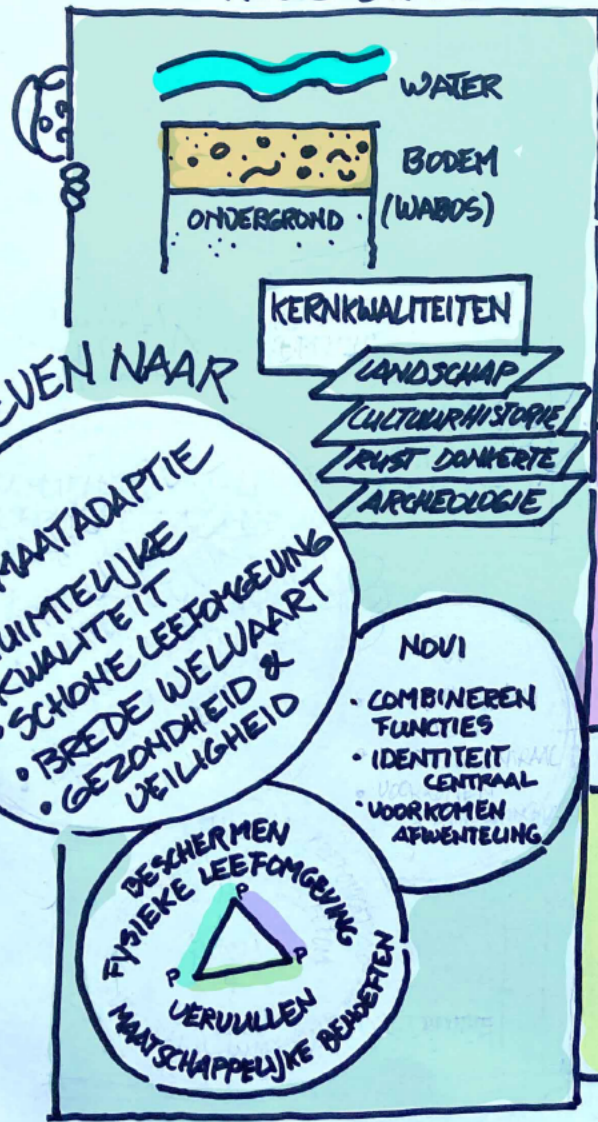 WATER
BODEM
(WABOS)
ONDERGROND
KERNKWALITEITEN
LANDSCHAP
CULTUURHISTORIE
RUST DONKERTE
ARCHEOLOGIE
NAAR
KWALITEIT
• SCHONE LEEFOMGEVING
• BREDE WELVAART
• GEZONDHEID &
VEILIGHEID
NOVI
• COMBINEREN
FUNCTIES
• IDENTITEIT
CENTRAAL
• VOORKOMEN
AFWENTELING
BESCHERMEN
FYSIEKE LEEFOMGEVING
P
P
P
VERVULLEN
MAATSCHAPPELIJKE BEHOEFTEN